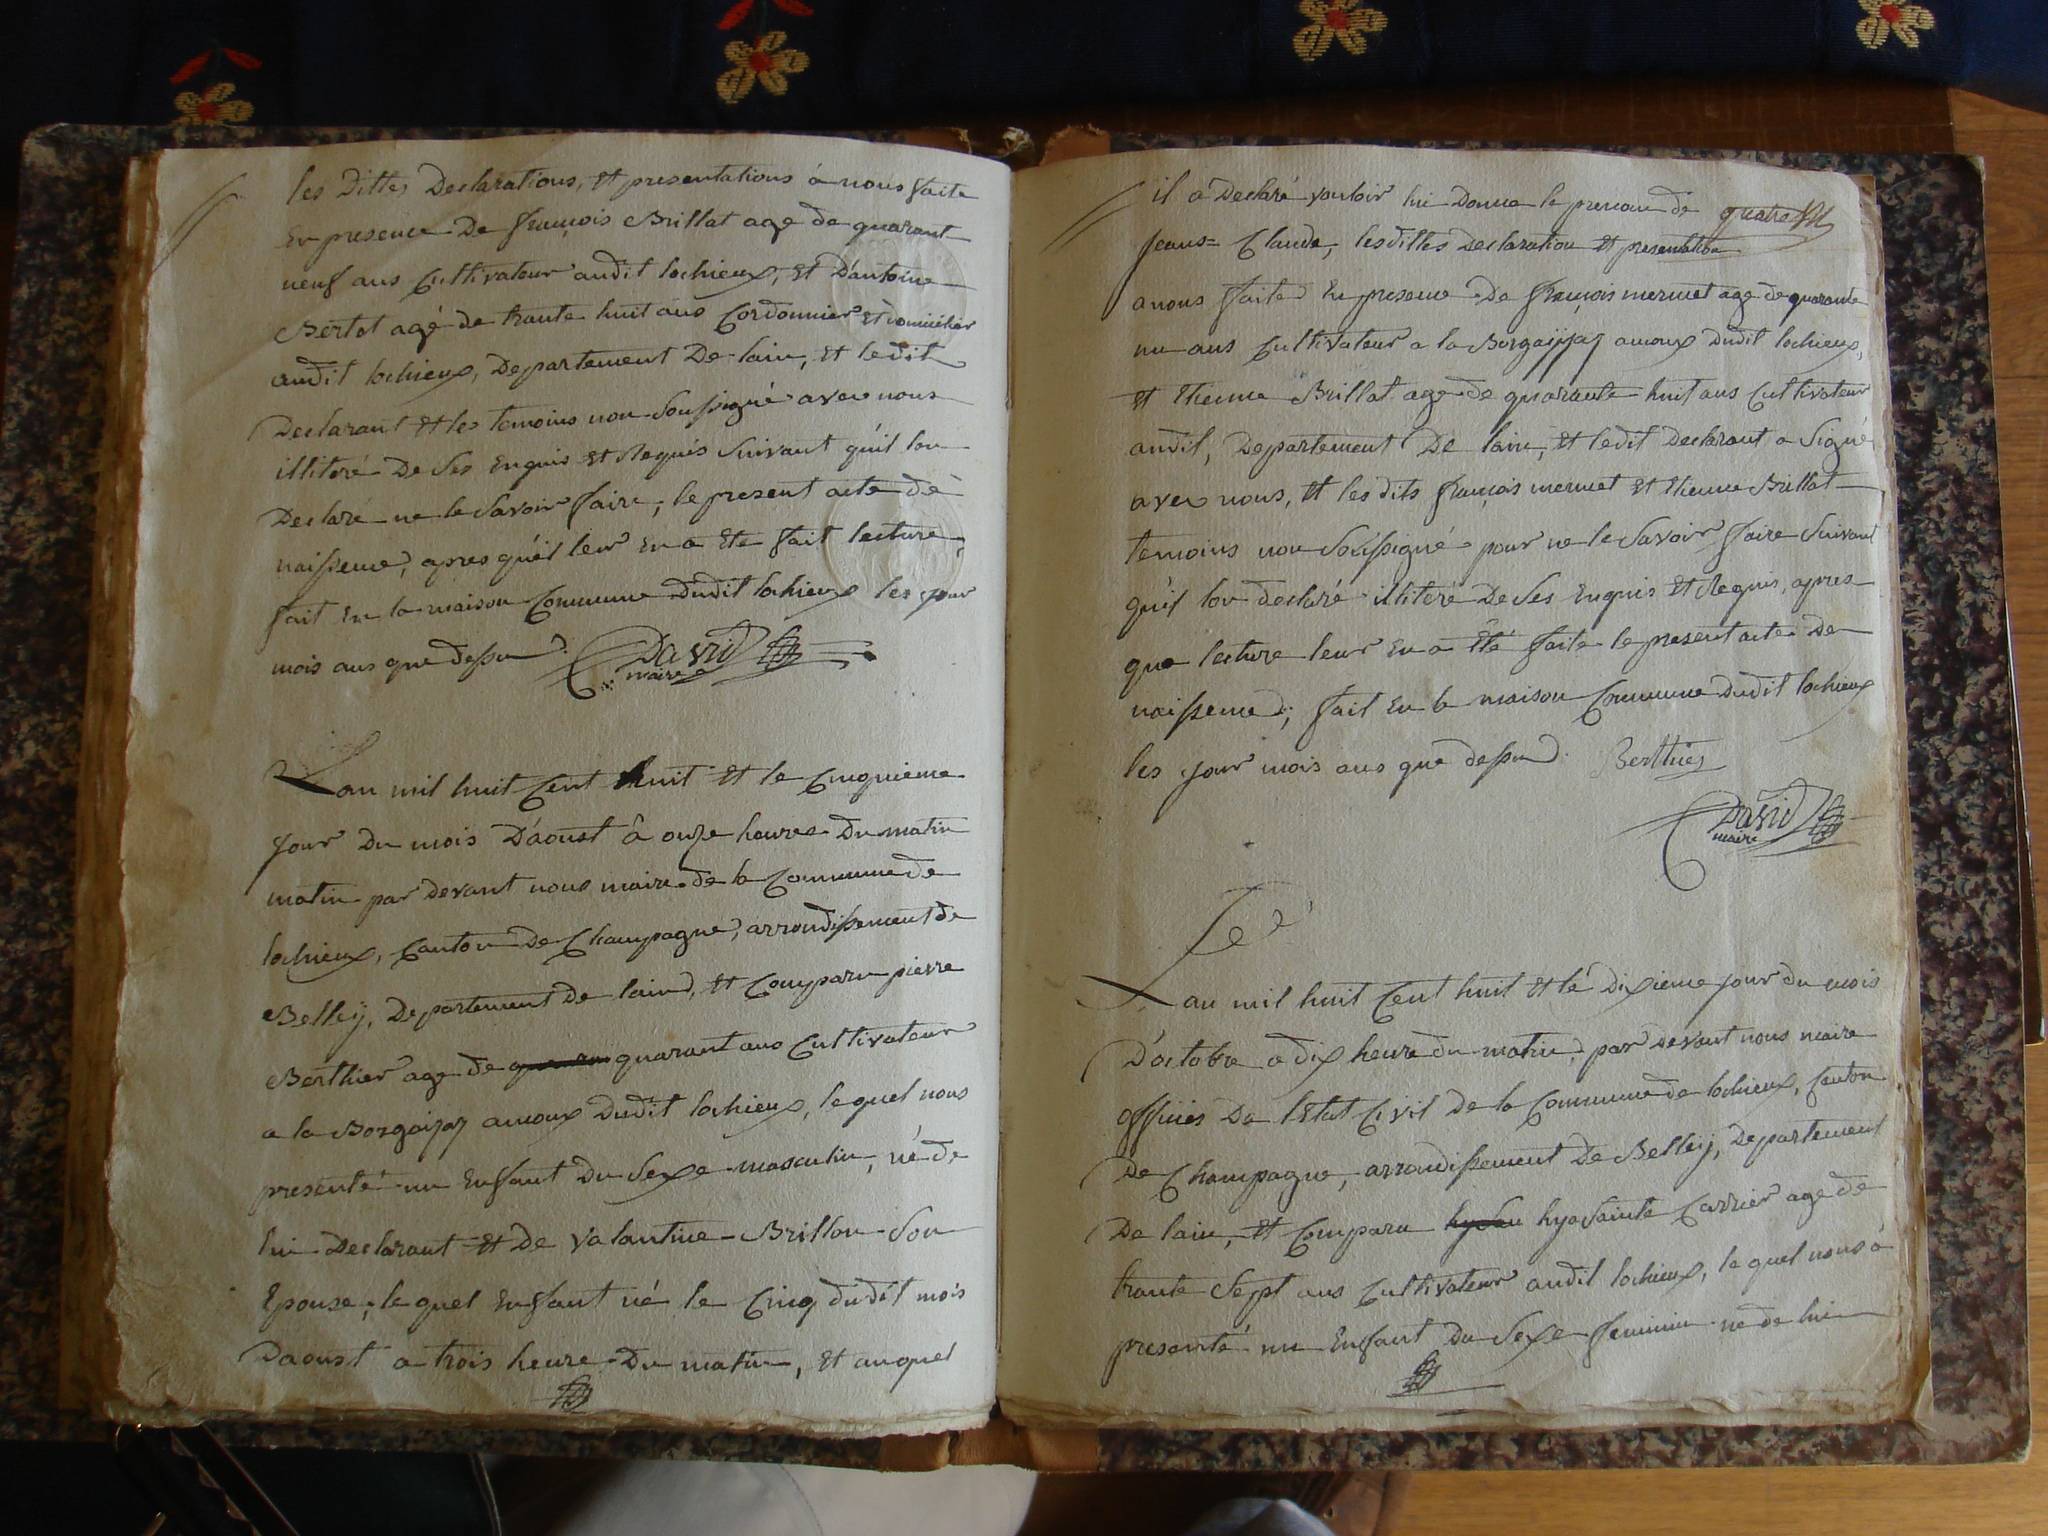 les dittes Declarations, et presentations à nous faite
en presence De françois Brillat agé de quarant
neuf ans Cultivateur audit lochieux, et D'antoine
Bertet agé de trante huit ans Cordonnier et domicilier
audit lochieux, Departement De lain, et ledit
Declarant et les temoins non soussigné avec nous
illiteré De Ses enquis et Requis Suivant qu'il lon
Declaré ne le Savoir faire, le present acte de
naissence, apres qu'il leur en a eté fait lecture,
fait en la maison Commune dudit lochieux les jour
mois ans que dessu
David
maire
Lan mil huit Cent huit et le Cinquieme
jour du mois D'aoust à onze heures du matin
matin par devant nous maire de la Commune de
lochieux, Canton de Champagne, arrondissement de
Belleÿ, Departement de lain, et Comparu pierre
Berthier age de quarant ans Cultivateur
a la Borgaizaz amoux dudit lochieux, le quel nous
presenté un enfant du Sexe masculin, né de
lui Declarant et de valantine Brillon Son
Epouse, le quel enfant né le Cinq dudit mois
Daoust a trois heure Du matin, et auquel
il a Declaré vouloir lui Donne le prenom de
quatre
Jeans= Claude, lesdittes Declaration et presentation
a nous faite en presence De françois mermet age de quarante
un ans Cultivateur a la Borgaiÿaz amoux dudit lochieux,
et Etienne Brillat age de quarante huit ans Cultivateur
audit, Departement De lain, et ledit Declarant a Signé
avec nous, et les dits françois mermet et Etienne Brillat
temoins non Soussigné pour ne le Savoir faire Suivant
qu'il lon declaré illiteré De Ses enquis et Requis, apres
que lecture leur en a eté faite le present acte de
naissence; fait en la maison Commune dudit lochieux
les jour mois ans que dessu Berthier
David
maire
Lan mil huit Cent huit et le Dixieme jour du mois
D'octobre a dix heure du matin, par devant nous maire
officier De l'Etat Civil de la Commune de lochieux, Canton
De Champagne, arrondissement De Belleÿ, Departement
De lain, et Comparu hyasainte Carrier age de
trante Sept ans Cultivateur audit lochieux, le quel nous à
presenté un enfant Du Sexe feminin né de lui